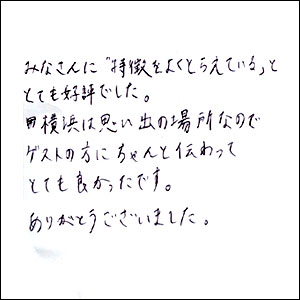 みなさんに“特徴をよくとらえている”と
とても好評でした。
横浜は思い出の場所なので
ゲストの方にちゃんと伝わって
とても良かったです。
ありがとうございました。